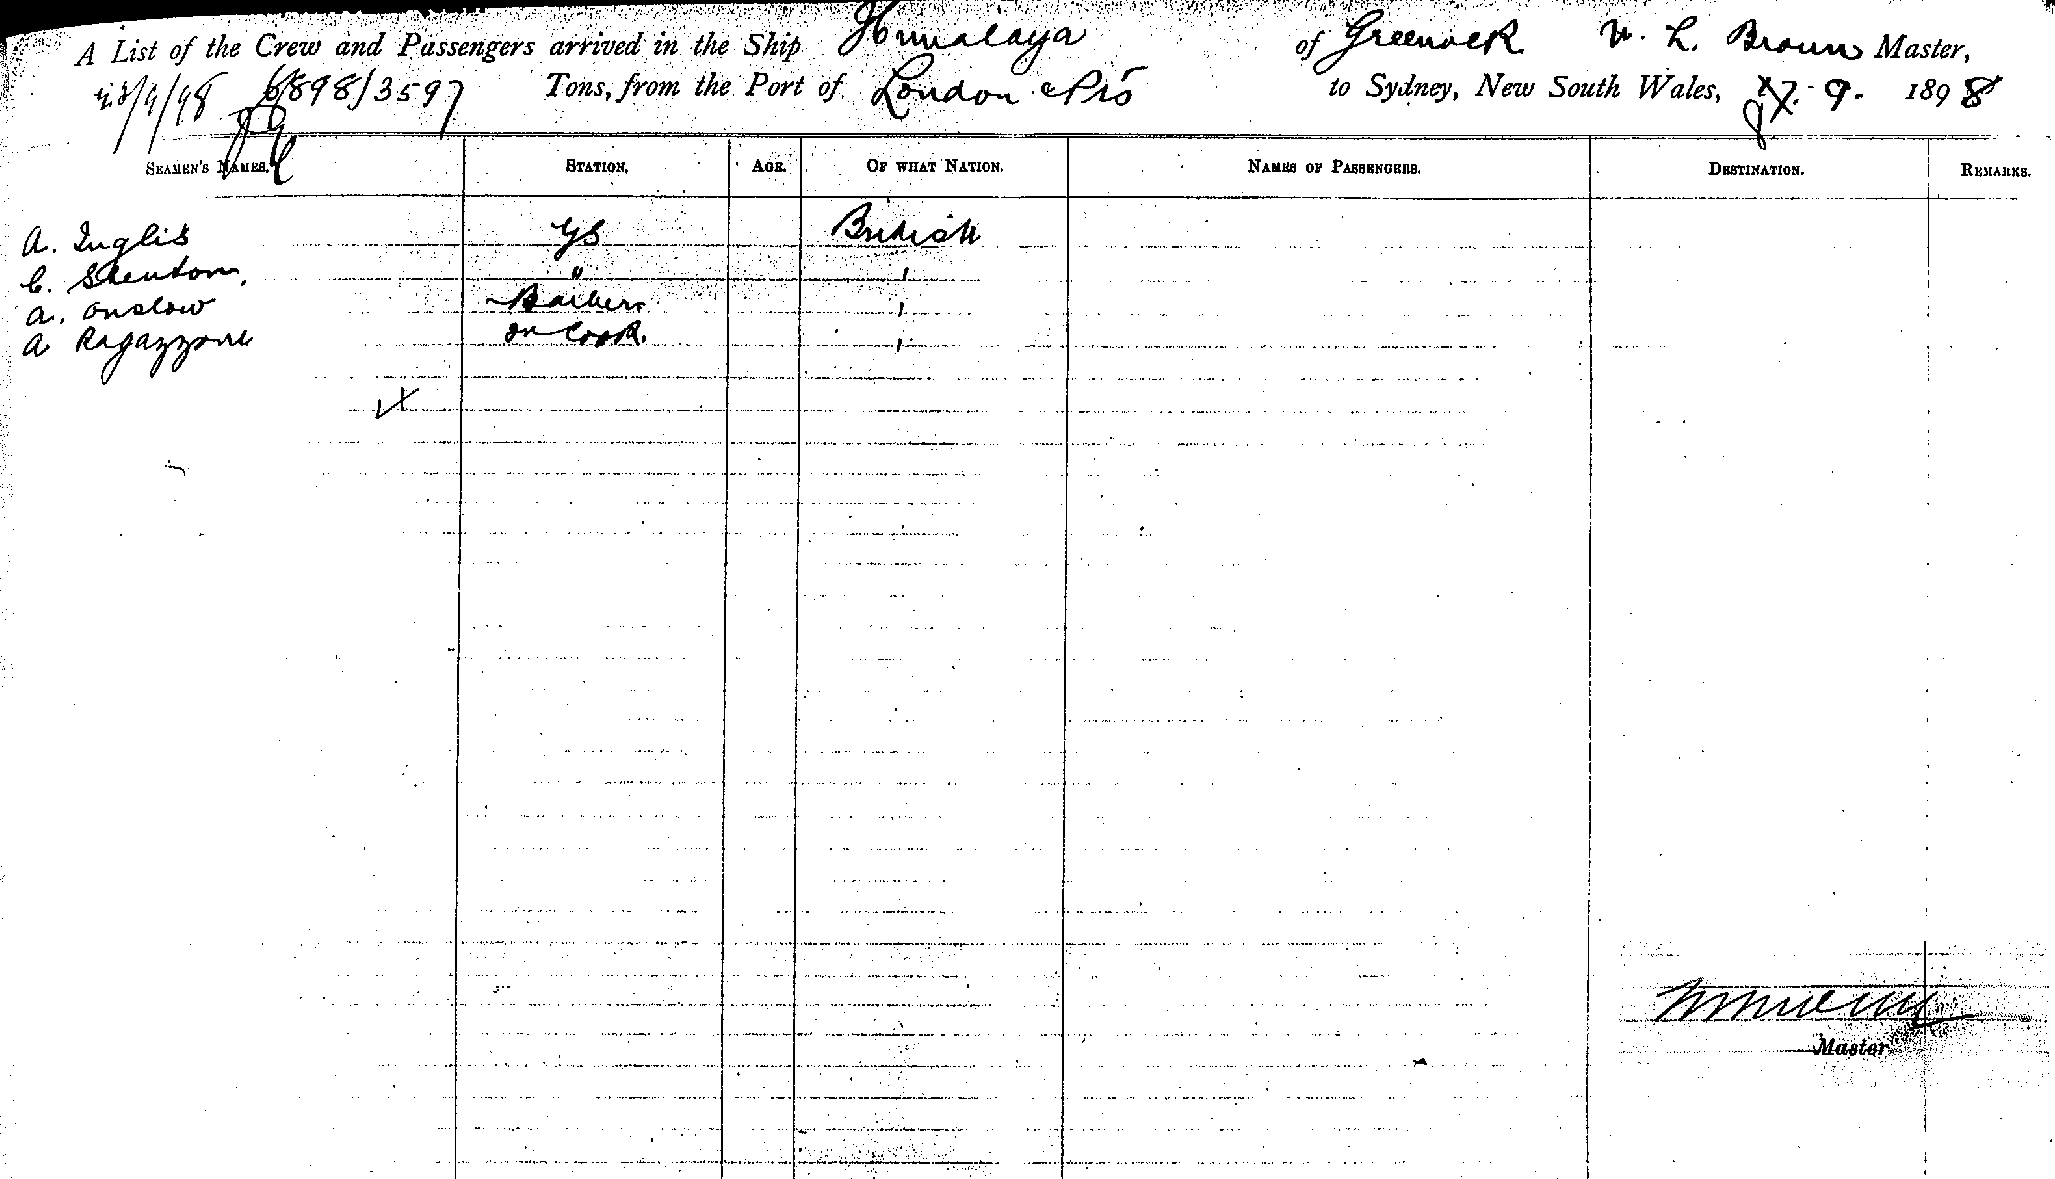 A List of the Crew and Passengers arrived in the Ship Himalaya of Greenock W. L. Brown Master,
6898/3597 Tons, from the Port of London & Pts to Sydney, New South Wales, 27.-9. 1898
SEAMEN'S NAMES. STATION. AGE. OF WHAT NATION. NAMES OF PASSENGERS. DESTINATION. REMARKS.
A. Inglis GS British
C. Stenton. " '
A. Onslow Barber '
A Ragazzoni Cook. '
Master